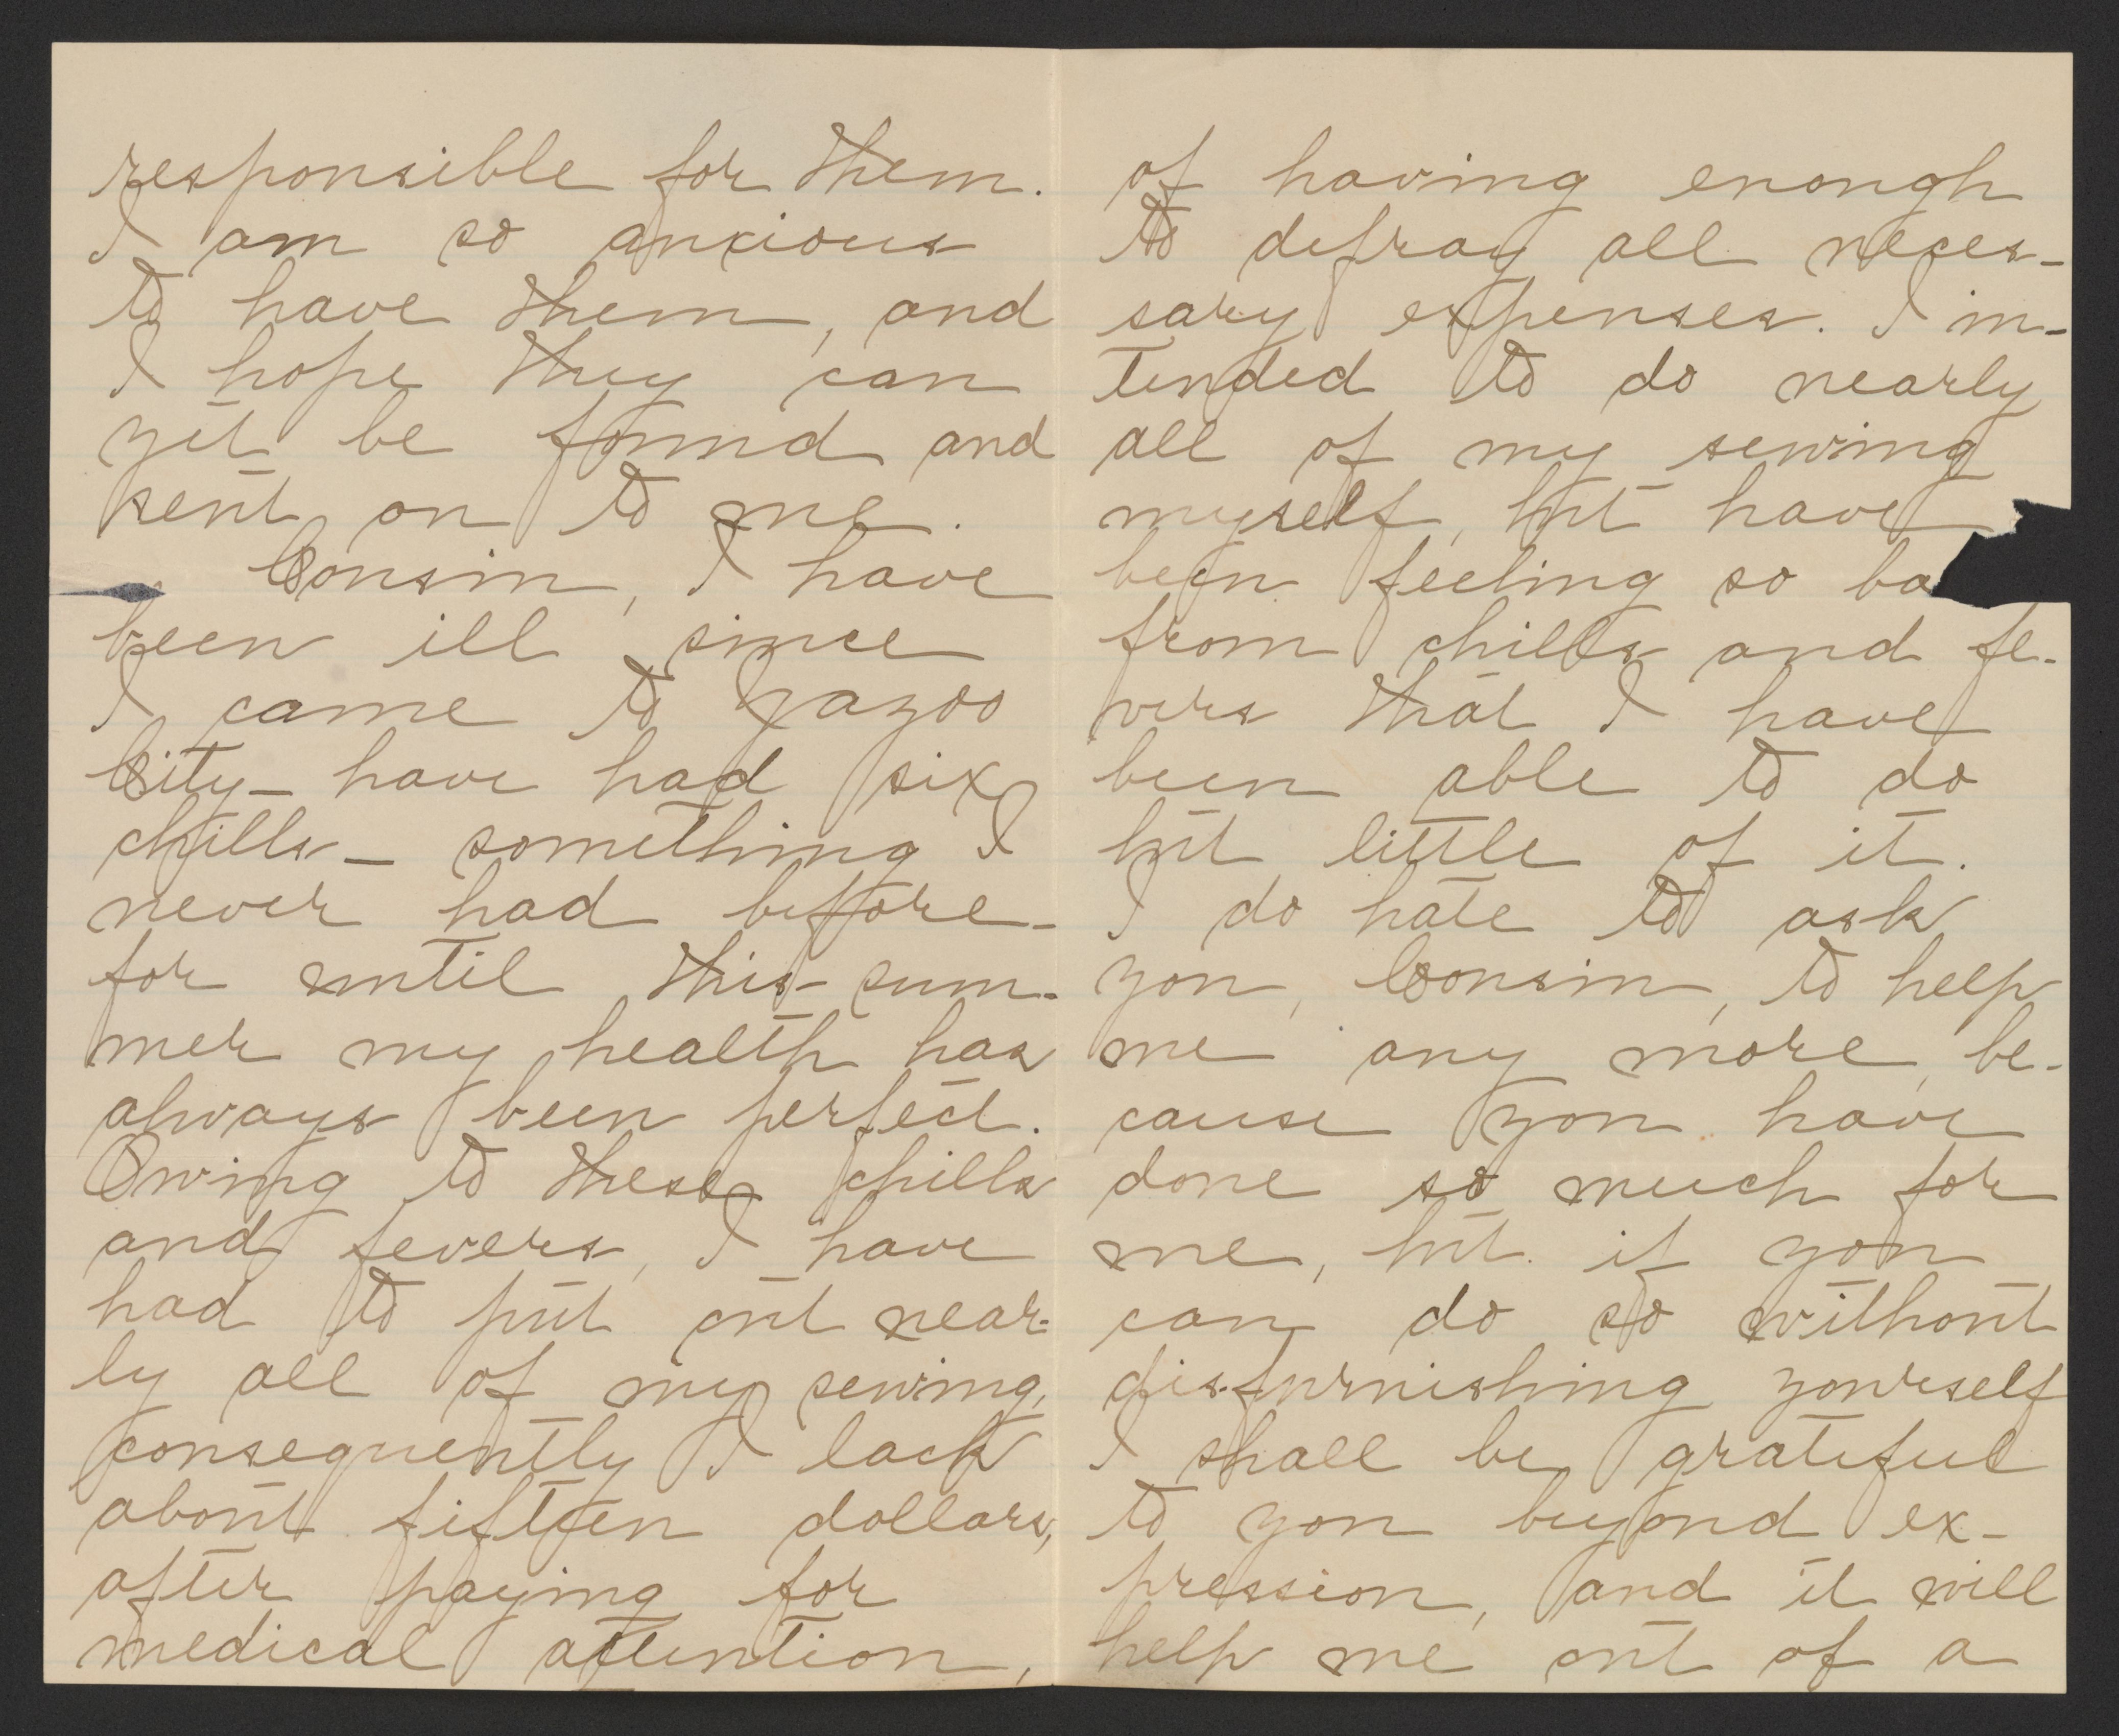 responsible for them.
I am so anxious
to have them, and
I hope they can
yet be found and
sent on to me.
Cousin, I have
been ill since
I came to Yazoo
City - have had six
chills - something I
never had before -
for until this sum-
mer my health has
always been perfect.
Owing to these chills
and fevers, I have
had to put out near-
ly all of my sewing,
consequently I lack
about fifteen dollars,
after paying for
medical attention,
of having enough
to defray all neces-
sary expenses. I in-
tended to do nearly
all of my sewing
myself, but have
been feeling so ba
from chills and fe-
vers that I have
been able to do
but little of it.
I do hate to ask
you, Cousin, to help
me any more, be-
cause you have
done so much for
me, but if you
can do so without
dis-furnishing yourself
I shall be grateful
to you beyond ex-
pression, and it will
help me out of a